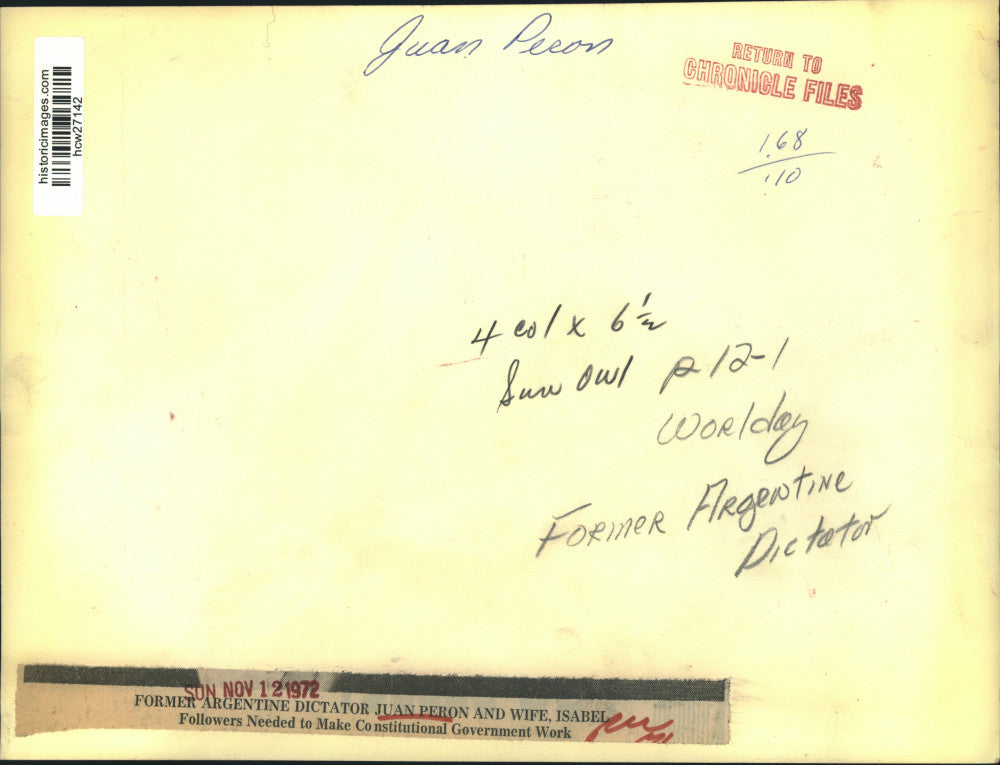 Juan Peron
RETURN TO
CHRONICLE FILES
historicimages.com
hcw27142
168
110
4 col x 6 1/2
Sun Owl P 12-1
Worlday
FORMER ARgentine
Dictator
SUN NOV 12 1972
FORMER ARGENTINE DICTATOR JUAN PERON AND WIFE, ISABEL
Followers Needed to Make Constitutional Government Work